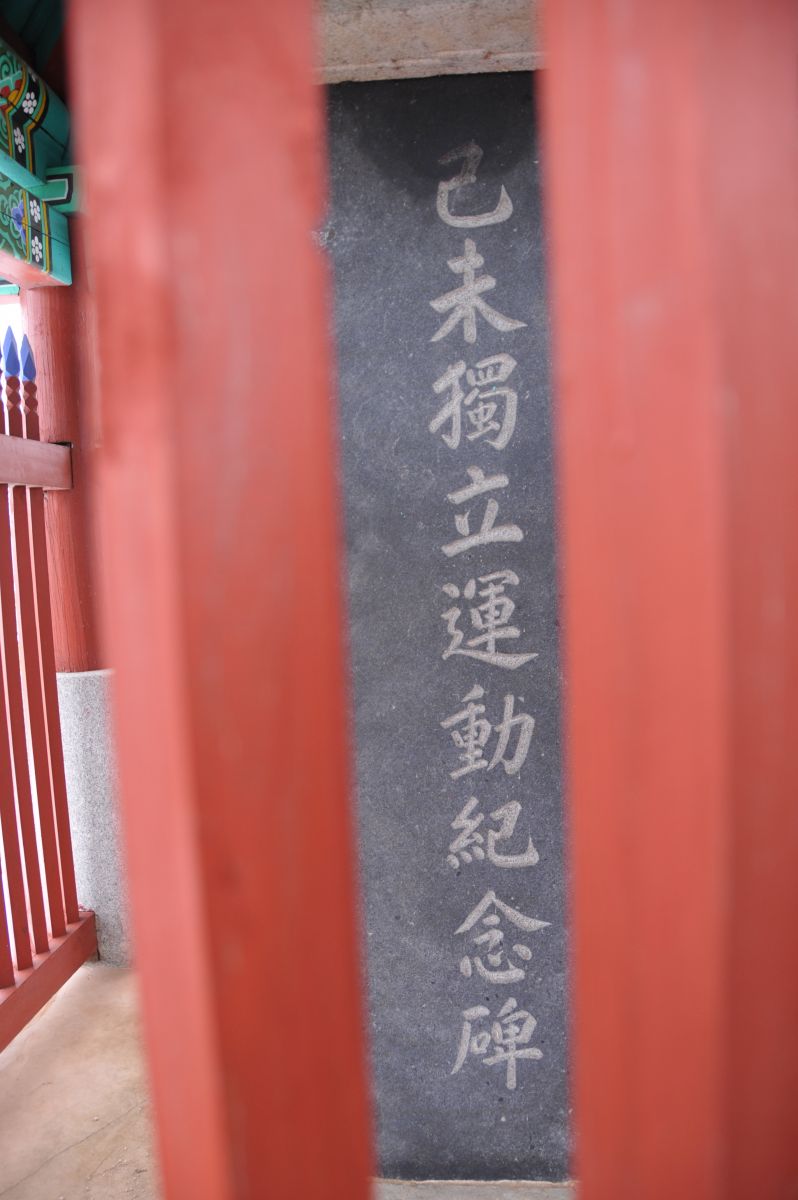 己未獨立運動紀念碑